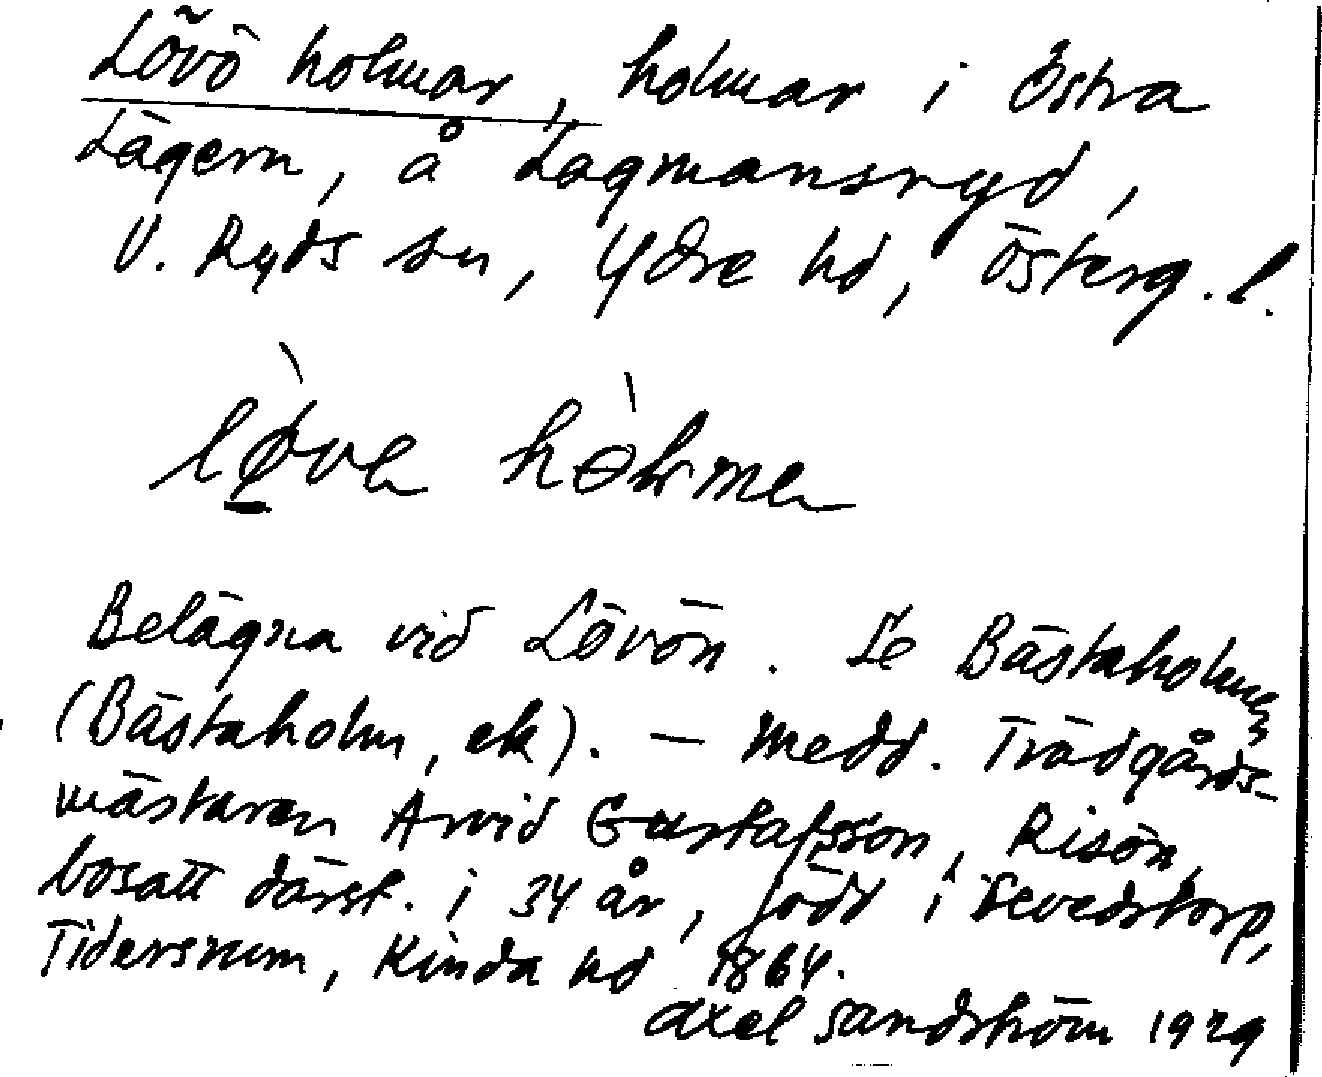 Lövö holmar, holmar i Östra
Lägern, å Lagmansryd,
V. Ryds sn, Ydre hd, Österg. l.
lø̀ve hòlmer
Belägna vid Lövön. Se Bästaholmen
(Bästaholm, ek). — Medd. Trädgårds-
mästaren Arvid Gustafsson, Risön,
bosatt därst. i 34 år, född i Sevedstorp,
Tidersrum, Kinda hd 1864.
Axel Sandström 1929